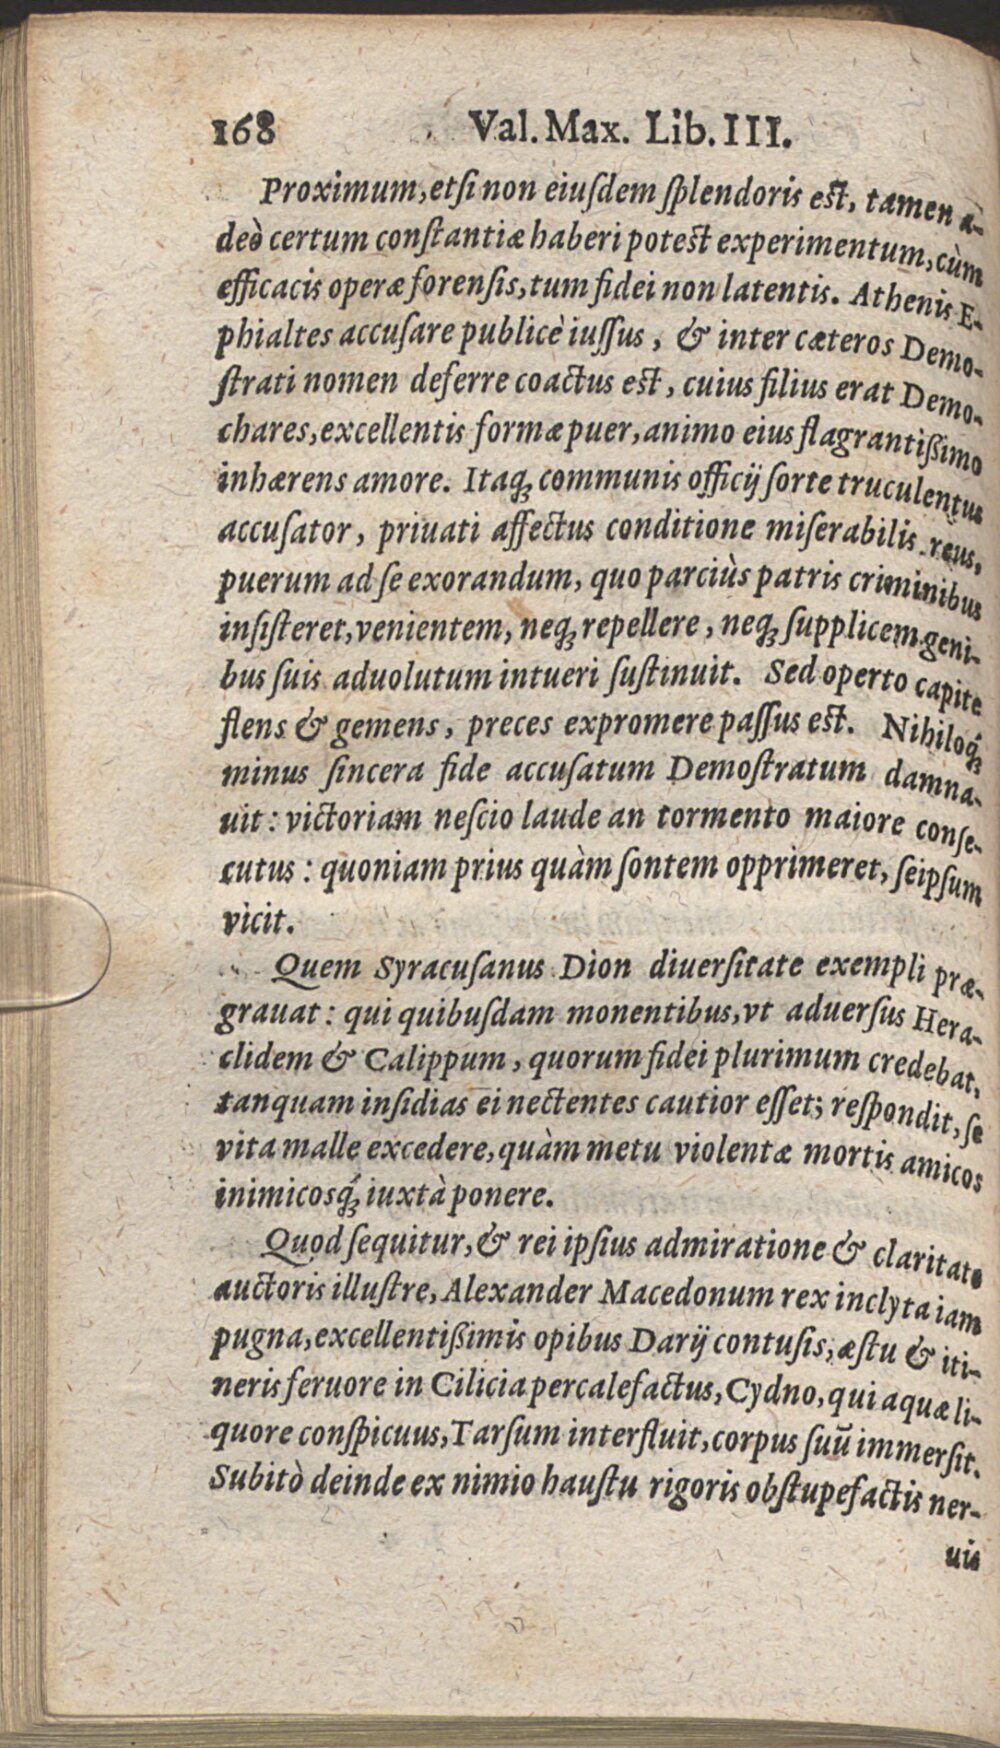 168 Val. Max. Lib. III.
Proximum, etsi non eiuſdem ſplendoris eſt, tamen a-
deò certum conſtantiæ haberi poteſt experimentum, cùm
efficacis operæ forenſis, tum fidei non latentis. Athenis E-
phialtes accuſare publicè iuſſus, & inter cæteros Demo-
ſtrati nomen deferre coactus eſt, cuius filius erat Demo-
chares, excellentis formæ puer, animo eius flagrantißimo
inhærens amore. Itaq; communis officij ſorte truculentus
accuſator, priuati affectus conditione miſerabilis reus,
puerum ad ſe exorandum, quo parciùs patris criminibus
inſiſteret, venientem, neq; repellere, neq; ſupplicem geni-
bus ſuis aduolutum intueri ſuſtinuit. Sed operto capite
flens & gemens, preces expromere paſſus eſt. Nihiloq́;
minus ſincera fide accuſatum Demoſtratum damna-
uit: victoriam neſcio laude an tormento maiore conſe-
cutus: quoniam prius quàm ſontem opprimeret, ſeipſum
vicit.
Quem Syracuſanus Dion diuerſitate exempli præ-
grauat: qui quibuſdam monentibus, vt aduerſus Hera-
clidem & Calippum, quorum fidei plurimum credebat,
tanquam inſidias ei nectentes cautior eſſet; reſpondit, ſe
vita malle excedere, quàm metu violentæ mortis amicos
inimicosq́; iuxtà ponere.
Quod ſequitur, & rei ipſius admiratione & claritate
auctoris illuſtre, Alexander Macedonum rex inclyta iam
pugna, excellentißimis opibus Darij contuſis, æſtu & iti-
neris feruore in Cilicia percalefactus, Cydno, qui aquæ li-
quore conſpicuus, Tarſum interfluit, corpus ſuū immerſit.
Subitò deinde ex nimio hauſtu rigoris obſtupefactis ner-
uis